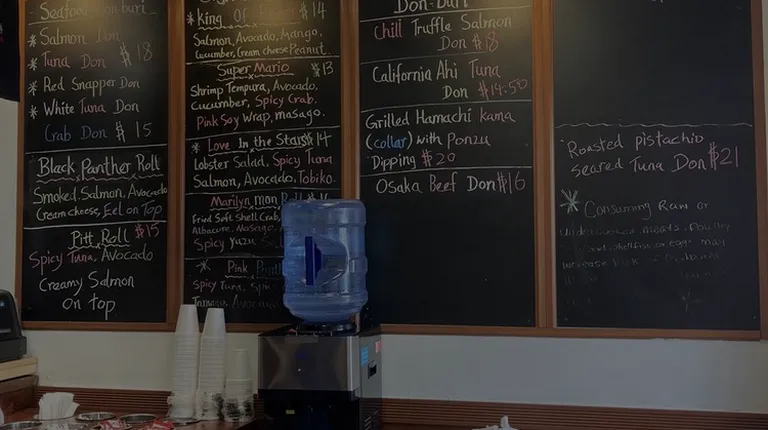 Seafood Donburi
* Salmon Don
* Tuna Don $18
* Red Snapper Don
* White Tuna Don
Crab Don $15
Black Panther Roll
Smoked Salmon, Avocado
Cream cheese, Eel on Top
Pitt Roll $15
Spicy Tuna, Avocado
Creamy Salmon
on top
* King of $14
Salmon, Avocado, Mango,
Cucumber, Cream cheese Peanut.
Super Mario $13
Shrimp Tempura, Avocado,
Cucumber, Spicy Crab.
Pink Soy Wrap, masago.
* Love in the Stars $14
Lobster Salad, Spicy Tuna
Salmon, Avocado, Tobiko.
Marilyn mon
Fried Soft Shell Crab,
Albacore, Masago.
Spicy Yuzu
* Pink
Spicy Tuna,
Avocado
Don-buri
Chili Truffle Salmon
Don $18
California Ahi Tuna
Don $14.50
Grilled Hamachi kama
(collar) with Ponzu
Dipping $20
Osaka Beef Don $16
Roasted pistachio
seared Tuna Don $21
* Consuming Raw or
undercooked meats, Poultry
shellfish or eggs may
increase